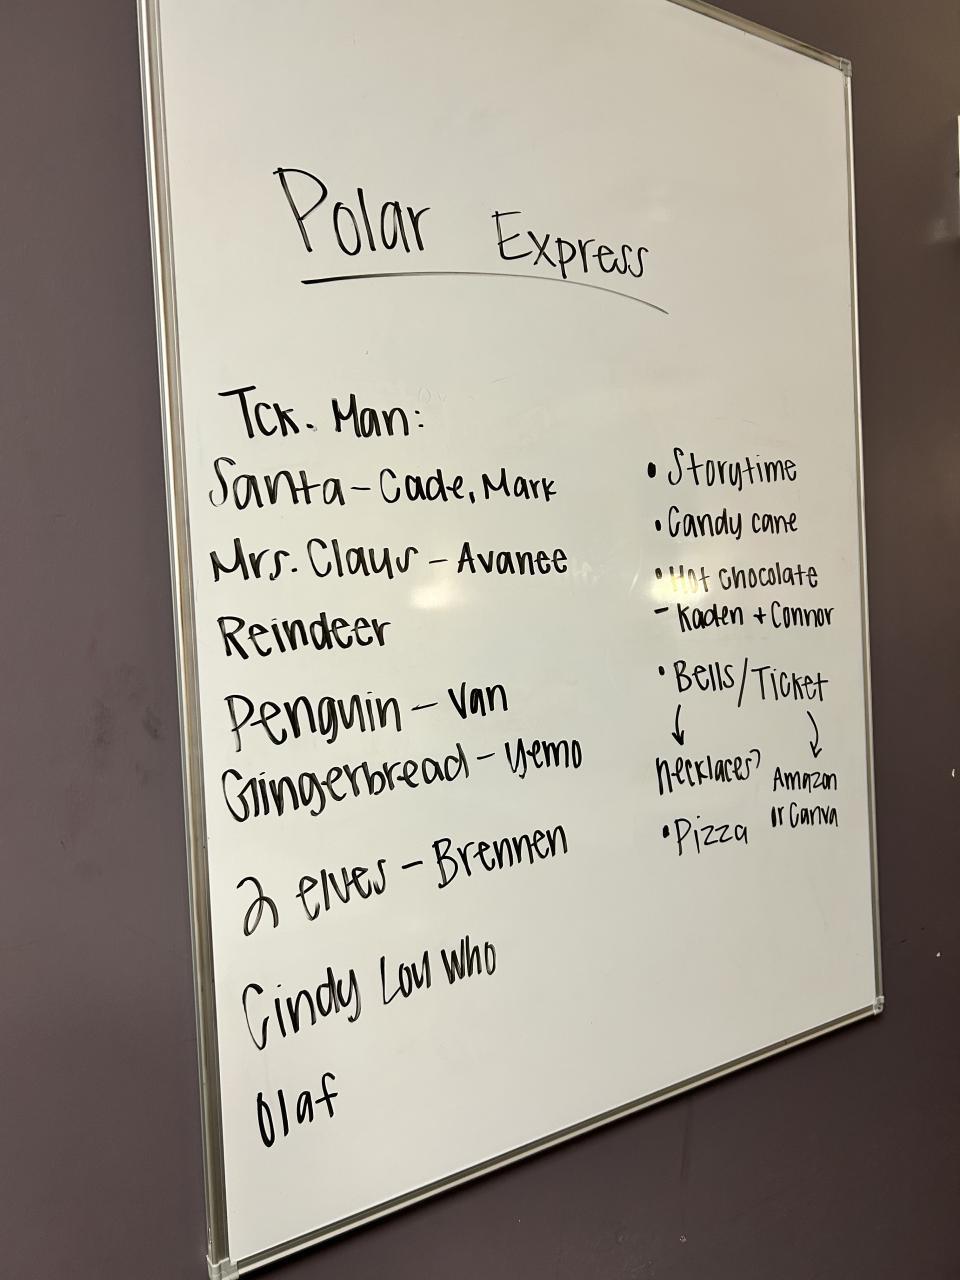 Polar Express
Tck. Man:
Santa - Cade, Mark
Mrs. Claus - Avanee
Reindeer
Penguin - Van
Gingerbread - Yemo
2 elves - Brennen
Cindy Lou Who
Olaf
• Storytime
• Candy cane
• Hot chocolate
- Kaden + Connor
• Bells/Ticket
↓ ↓
necklaces? Amazon
or Canva
• Pizza